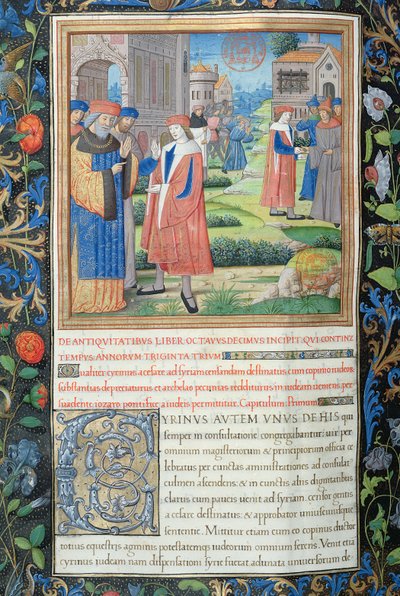 DE ANTIQVITATIBVS LIBER OCTAVVSDECIMVS INCIPIT QVI CONTINZ
TEMPVS ANNORVM TRIGINTA TRIVM
Qualiter cyrinus a cesare ad syriam censendam destinatus cum coponio iudeos
substantias depreciaturus et archelao pecunias redditurus in iudeam veniens per
suadente iozaro pontifice a iudeis permittitur. Capitulum Primum
QVIRINVS AVTEM VNVS DE HIS qui
semper in consultatione congregabantur: vir per
omnium magistrorum & principiorum officia ce
lebratus per cunctas aministrationes ad consular
culmen ascendens: & in cunctis aliis dignitatibus
clarus cum paucis uenit ad syriam: censor gentis
a cesare destinatus: & approbator uniuscuiusque
sententie. Mittitur etiam cum eo coponius ductor
totius equestris agminis potestatemque iudeorum omnium ferens. Venit etiam
cyrinus iudeam nam dispensationi syrie fuerat adunata universorum de